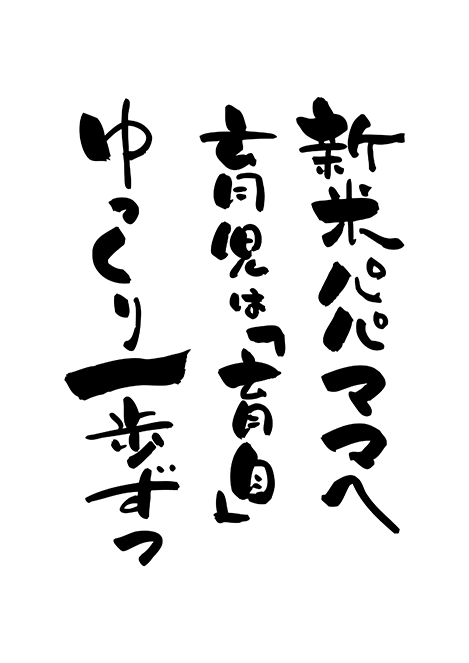 新米パパママへ
育児は「育自」
ゆっくり一歩ずつ